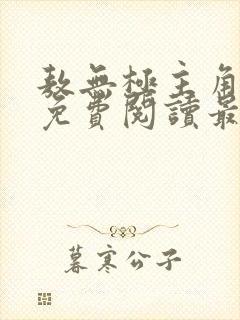 敖無極主角
免費閱讀最
暮寒公子